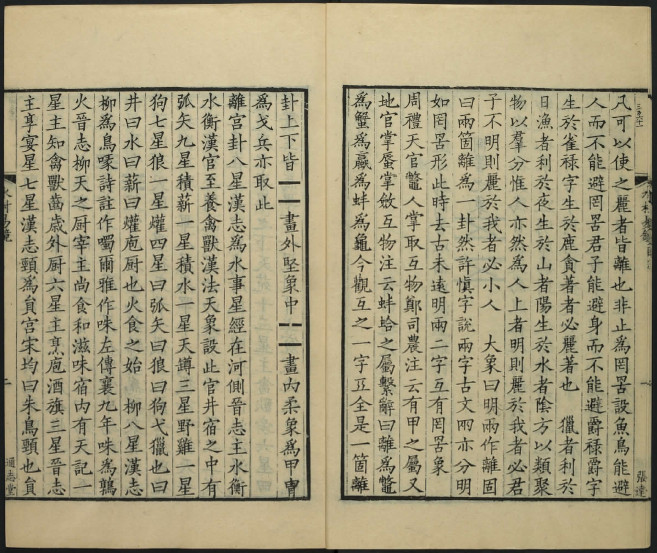 凡可以使之麗者皆離也非止爲罔罟設魚鳥能避
人而不能避罔罟君子能避身而不能避爵祿爵字
生於雀祿字生於鹿貪著者必麗著也　獵者利於
日漁者利於夜生於山者陽生於水者陰方以類聚
物以羣分惟人亦然爲人上者明則麗於我者必君
子不明則麗於我者必小人　大象曰明兩作離固
曰兩箇離爲一卦然許慎字說兩字古文㓁亦分明
如罔罟形此時去古未遠明兩二字互有罔罟象
周禮天官鼈人掌取互物鄭司農注云有甲之屬又
地官掌蜃掌斂互物注云蚌蛤之屬繫辭曰離爲鼈
爲蟹爲蠃爲蚌爲龜今觀互之一字㸦全是一箇離
卦上下皆⚊畫外堅象中⚋畫内柔象爲甲冑
爲戈兵亦取此
離宮卦八星漢志爲水事星經在河側晉志主水衡
水衡漢官至掌養獸漢法天象設此官井宿之中有
弧矢九星積薪一星積水一星天罇三星野雞一星
狗七星狼一星爟四星曰弧矢曰狼曰狗弋獵也曰
井曰水曰薪曰爟庖厨也火食之始　柳八星漢志
柳爲鳥喙詩註作噣爾雅作咮左傳襄九年咮爲鶉
火晉志柳天之厨宰主尚食和滋味宿内有天記一
星主知禽獸齒歳外厨六星主烹庖酒旗三星晉志
主享宴星七星漢志頸爲員宮宋均曰朱鳥頸也員
張達
通志堂